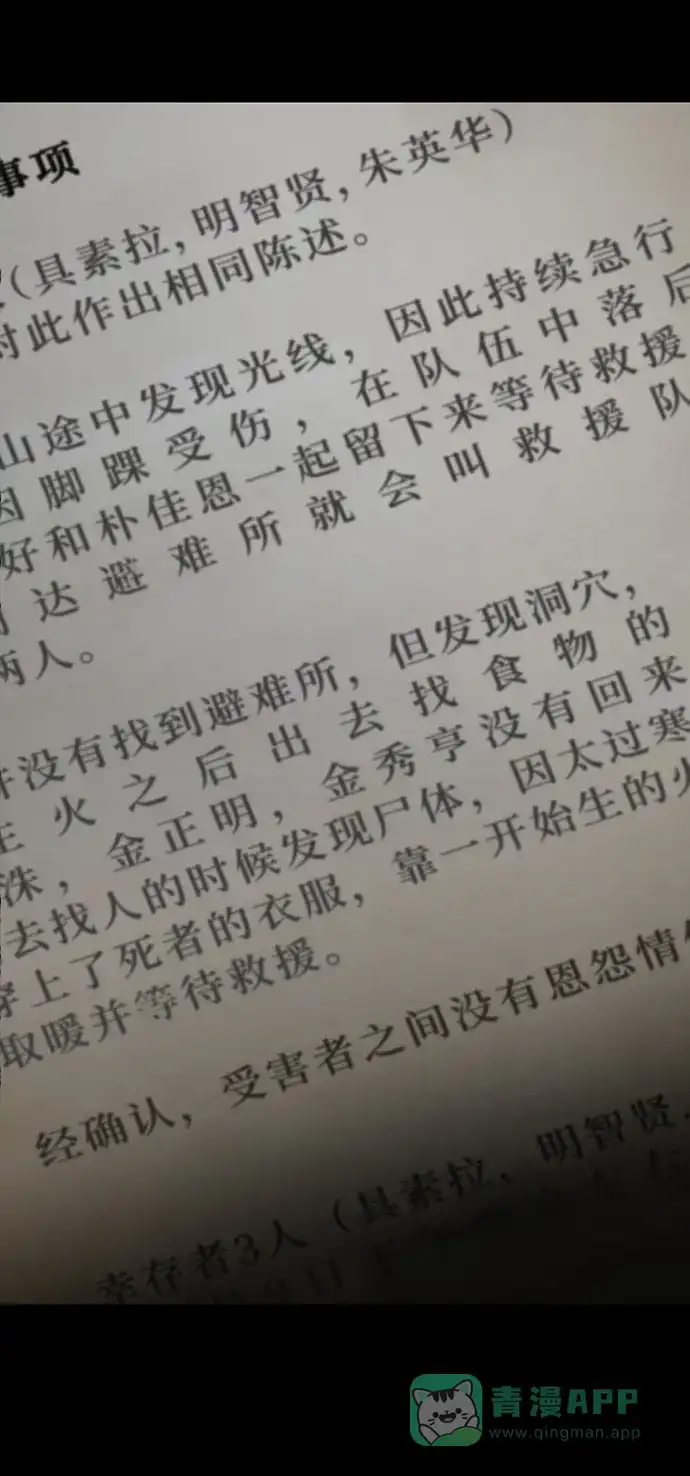 事项
（具素拉, 明智贤, 朱英华）
对此作出相同陈述。
山途中发现光线，因此持续急行
因脚踝受伤，在队伍中落后
好和朴佳恩一起留下来等待救援
达避难所就会叫救援队
两人。
并没有找到避难所，但发现洞穴，
生火之后出去找食物的
洙，金正明，金秀亨没有回来
去找人的时候发现尸体，因太过寒
穿上了死者的衣服，靠一开始生的火
取暖并等待救援。
经确认，受害者之间没有恩怨情
幸存者3人（具素拉，明智贤，
青漫APP
www.qingman.app